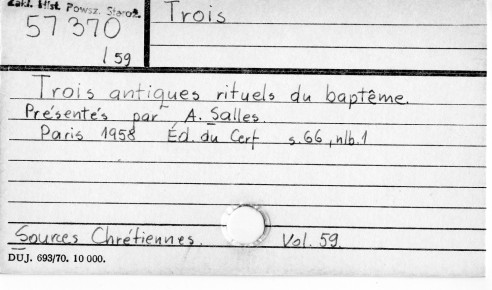 Zakł. Hist. Powsz. Staroż.
57370
/59
Trois
Trois antiques rituels du baptême.
Présentés par A. Salles.
Paris 1958 Éd. du Cerf s. 66, nlb. 1
Sources Chrétiennes. Vol. 59.
DUJ. 693/70. 10 000.